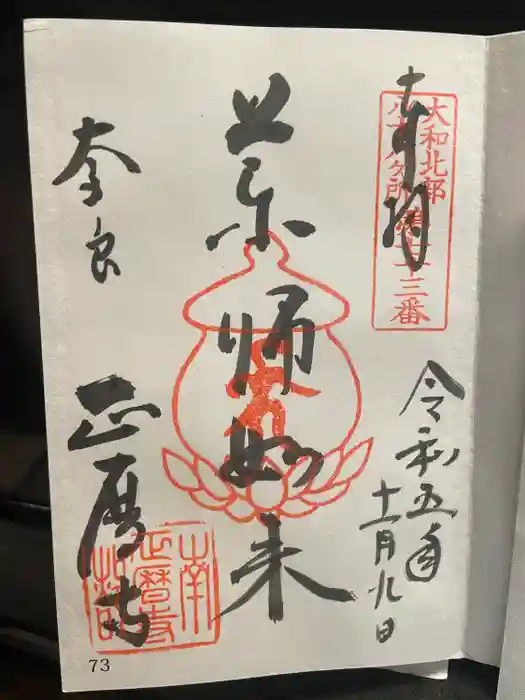 奉拝
大和北部
八十八ヶ所第七十三番
令和五年
十一月九日
薬師如来
奈良
正暦寺
73